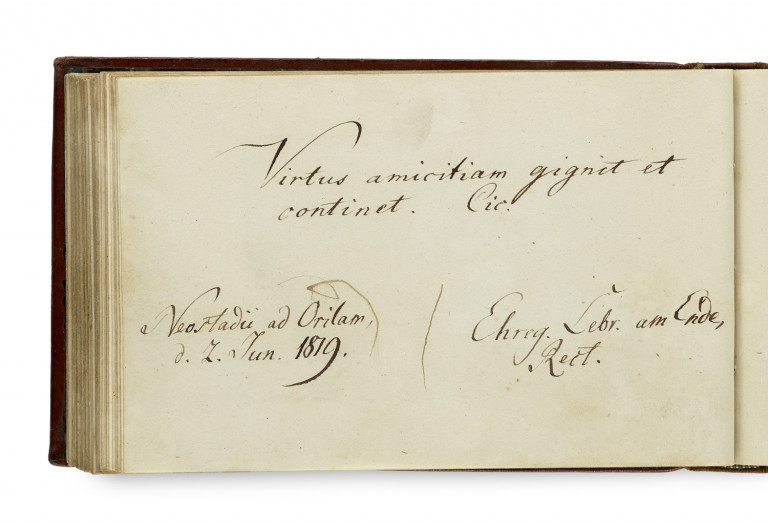 Virtus amicitiam gignit et
continet. Cic.
Neostadii ad Orilam,
d. 2. Jun. 1819.
Ehreg. Lebr. am Ende,
Rect.